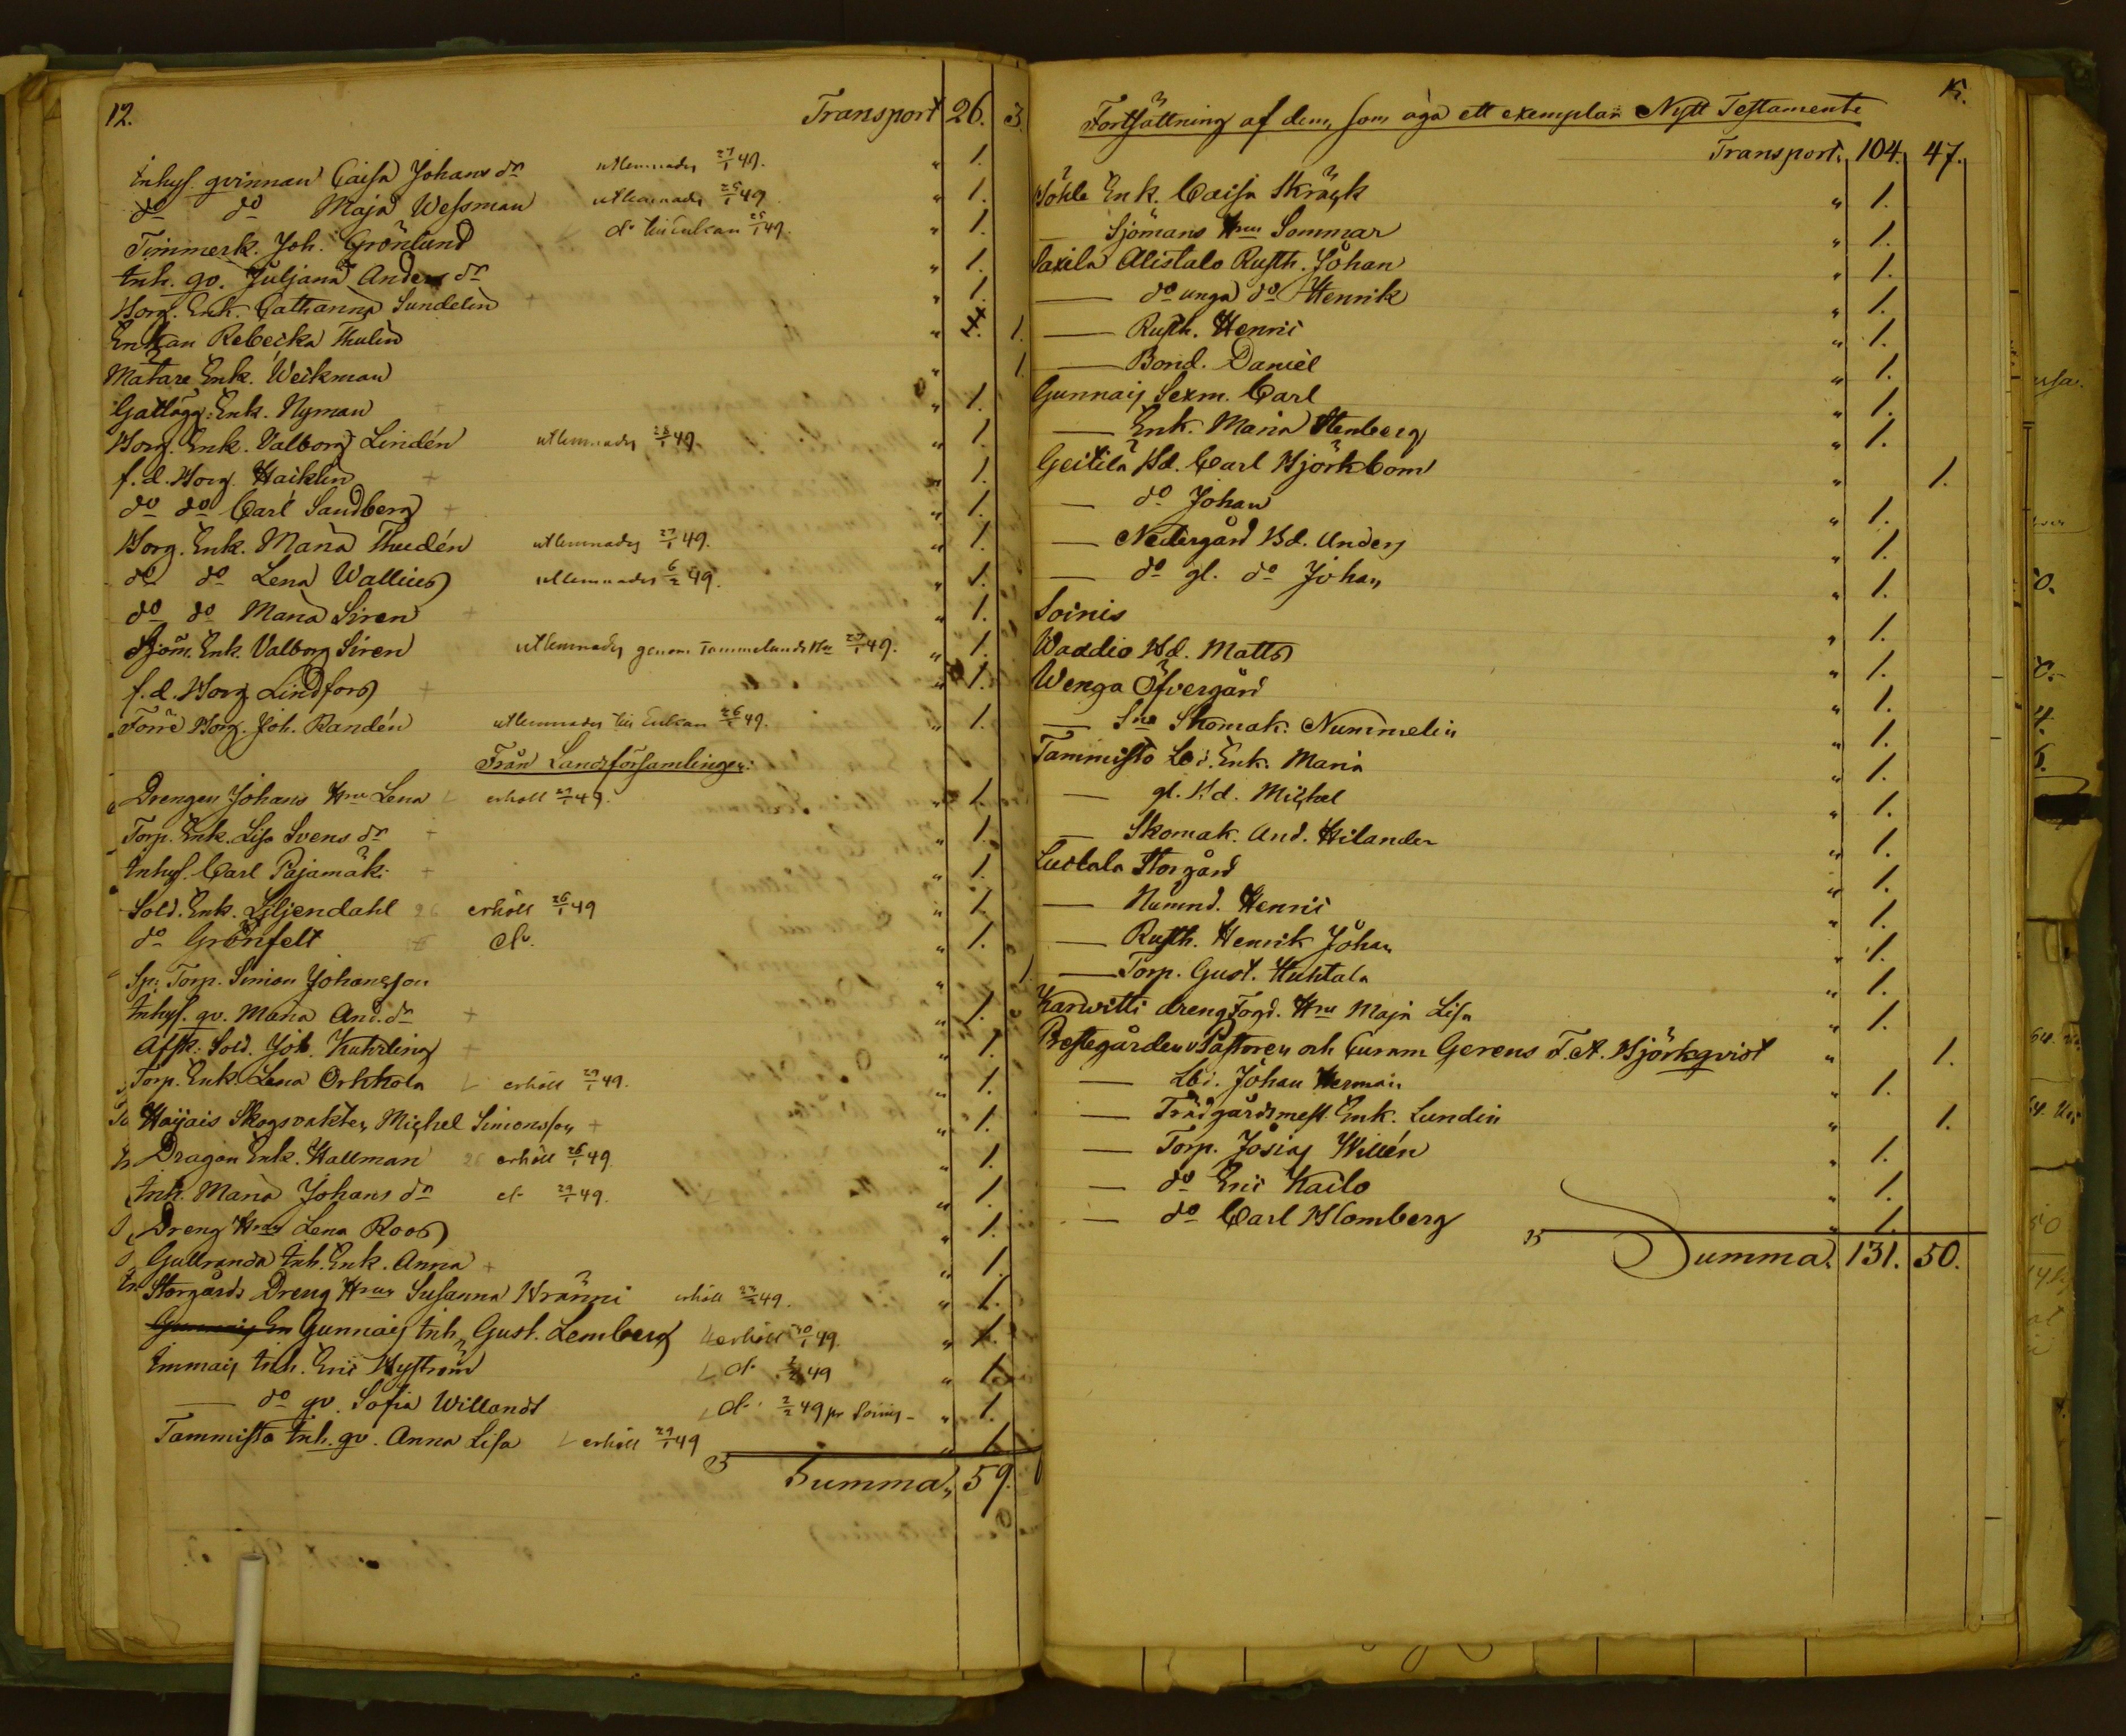 12.
Transport 26. 3.
Inhys. qvinnan Caisa Johans dr utlemnades 27/1 49. " 1.
do do Maja Wessman utlemnades 25/1 49 " 1.
Timmerk. Joh. Grönlund do till Enkan 25/1 49. " 1.
Inh. qv. Juljana Anders dr " 1.
Borg. Enk. Catharina Sundelin + " 1.
Enkan Rebecka Thulin " 1. 1.
Mätare Enk. Weikman " 1
Gatlägg. Enk. Nyman " 1.
Borg. Enk. Valborg Lindén utlemnades 28/1 49. " 1.
f.d. Borg. Haiklin + " 1.
do do Carl Sandberg + " 1.
Borg. Enk. Maria Thudén utlemnades 27/1 49. " 1.
do do Lena Wallius utlemnades 6/2 49. " 1.
do do Maria Siren + " 1.
Sjöm. Enk. Valborg Siren utlemnades genom Tammelunds 29/1 49. " 1.
f.d. Borg Lindfors + " 1.
Förre Borg. Joh. Randén utlemnades till Enkan 26/1 49. " 1.
Från Landsförsamlingen:
Drengen Johans Hru Lena erhöll 29/1 49. " 1.
Torp. Enk. Lisa Svens dr + " 1.
Inhys. Carl Pajamäki + " 1.
Sold. Enk. Liljendahl 26 erhöll 26/1 49 " 1.
do Grönfelt do " 1.
Sp. Torp. Simon Johansson " 1.
Inhys. qv. Maria And. dr + " 1.
Afsk. Sold. Joh. Kuhrling + " 1.
Torp. Enk. Lena Orhkola L erhöll 29/1 49. " 1.
Haijais Skogsvakten Michel Simonsson + " 1.
Dragon Enk. Hallman 26 erhöll 26/1 49. " 1.
Inh. Maria Johans dr do 29/1 49. " 1.
Dreng Hrus Lena Roos " 1.
Gullranda Inh. Enk. Anna + " 1.
Storgårds Dreng Hrus Susanna Wränni erhöll 27/2 49. " 1.
Gunnais Inh. Gust. Lemberg erhöll 30/1 49. " 1.
Immais Inh. Eric Nyström L do 2/2 49 " 1.
— do qv. Sofia Willandt L do 2/2 49 pr Soinis - " 1.
Tammisto Inh. qv. Anna Lisa L erhöll 29/1 49 " 1.
Summa, 59.
Fortsättning af dem, som äga ett exemplar Nytt Testamente
Transport. 104. 47.
Enk. Caisa Skräck " 1.
— Sjömans Hru Sommar " 1.
Saxila Alistalo Rusth. Johan " 1.
— do unga do Henrik " 1.
— Rusth. Henric " 1.
— Bond. Daniel " 1.
Gunnais Sexm. Carl " 1.
— Enk. Maria Stenberg " 1.
Geitilä Bd. Carl Björkbom " 1.
— do Johan " 1.
— Nedergård Bd. Anders " 1.
— do gl. do Johan " 1.
Soinis " 1.
Waddio Bd. Matts " 1.
Wenga Öfvergård " 1.
— Sne Skomak. Nummelin " 1.
Tammisto Enk. Maria " 1.
— gl. Bd. Michel " 1.
— Skomak. And. Hilander " 1.
Luctala Storgård " 1.
— Nämnd. Henric " 1.
— Rusth. Henrik Johan " 1.
— Torp. Gust. Huhtala " 1.
Karwitti dreng Fogd. Hru Maja Lisa " 1.
Prestegården v Pastoren och Curam Gerens F.A. Björkqvist " 1.
— Johan Herman " 1.
— Trädgårdsmest. Enk. Lundin " 1.
— Torp. Josias Willén " 1.
— do Eric Kailo " 1.
— do Carl Blomberg " 1.
Summa. 131. 50.